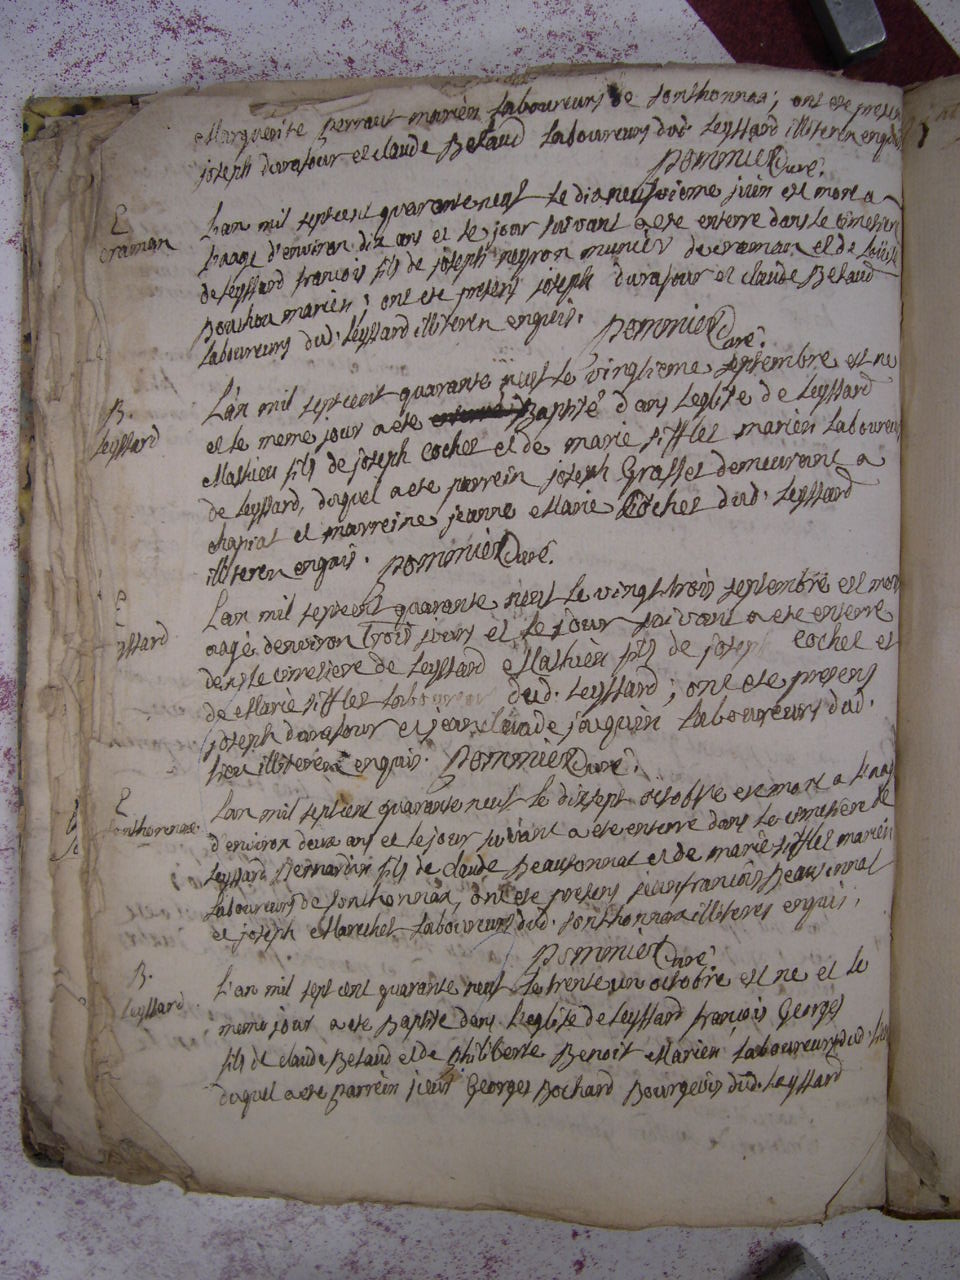 Marguerite perraut mariés Laboureurs de sonthonnas; ont ete presen
joseph durafour et claude Betaud Laboureurs dud. Leyssard illiteres enquis
pommier Curé.
E
craman
L'an mil sept cent quarante neuf Le dixneufvieme juin est mort a
l'aage d'environ dix ans et le jour suivant a ete enterré dans Le cimetiere
de Leyssard francois fils de joseph neyron munier de craman et de Loüise
Bouchou mariés; ont ete presens joseph durafour et claude Betaud
Laboureurs dud. Leyssard illiteres enquis.
pommier Curé.
B.
Leyssard
L'an mil sept cent quarante neuf Le vingtieme septembre est né
et le meme jour a ete Baptisé dans L'eglise de Leyssard
Mathieu fils de joseph cochet et de marie sifflet mariés Laboureurs
de Leyssard, duquel a ete parrein joseph Grasset demeurant a
chapiat et marreine jeanne Marie cochet dud. Leyssard
illiteres enquis. pommier Curé.
E
yssard
L'an mil sept cent quarante neuf Le vingt trois septembre est mort
aagé d'environ trois jours et le jour suivant a ete enterré
dans le cimetiere de Leyssard Mathieu fils de joseph cochet et
de Marie sifflet Laboureurs dud. Leyssard; ont ete presens
joseph durafour et jean claude jacquin Laboureurs dud.
Lieu illiteres enquis. pommier Curé.
E
sonthonnas
L'an mil sept cent quarante neuf Le dix sept octobre est mort a L'aage
d'environ deux ans et le jour suivant a ete enterré dans Le cimetiere de
Leyssard Bernardin fils de claude Beausonnat et de marie sifflet mariés
Laboureurs de sonthonnas, ont ete presens jean francois Beausonnat
et joseph Marechet Laboureurs dud. sonthonnas illiteres enquis.
pommier Curé
B.
Leyssard
L'an mil sept cent quarante neuf Le trente un octobre est né et Le
meme jour a ete Baptisé dans L'eglise de Leyssard francois Georges
fils de claude Betaud et de philiberte Benoit Mariés Laboureurs dud. Lieu
duquel a ete parrein sieur Georges Bochard Bourgeois dud. Leyssard